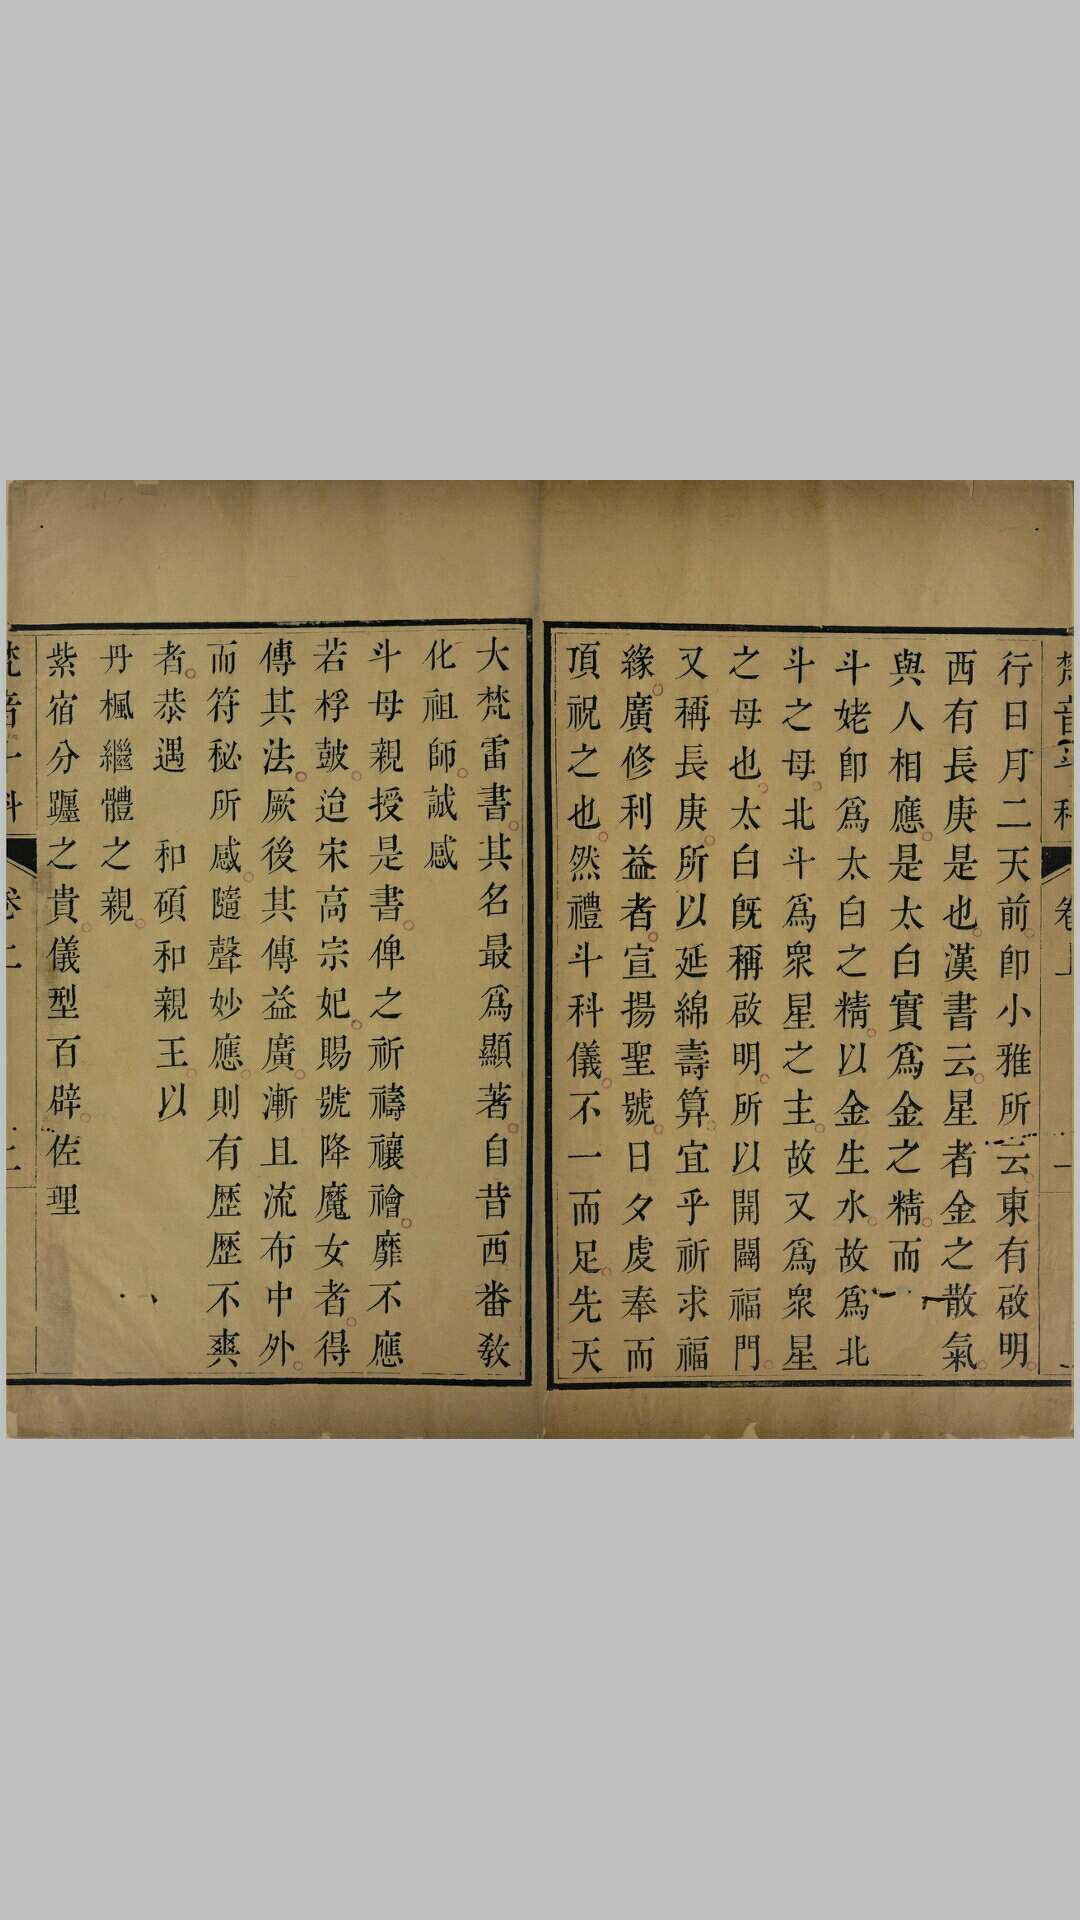 行日月二天前卽小雅所云東有啟明
西有長庚是也漢書云星者金之散氣
與人相應是太白實爲金之精而
斗姥卽爲太白之精以金生水故爲北
斗之母北斗爲衆星之主故又爲衆星
之母也太白旣稱啟明所以開闢福門
又稱長庚所以延綿壽算宜乎祈求福
緣廣修利益者宣揚聖號日夕虔奉而
頂祝之也然禮斗科儀不一而足先天
大梵雷書其名最爲顯著自昔西畨敎
化祖師誠感
斗母親授是書俾之祈禱禳禬靡不應
若桴皷迨宋高宗妃賜號降魔女者得
傳其法厥後其傳益廣漸且流布中外
而符秘所感隨聲妙應則有歷歷不爽
者恭遇　和碩和親王以
丹楓繼體之親
紫宿分躔之貴儀型百辟佐理